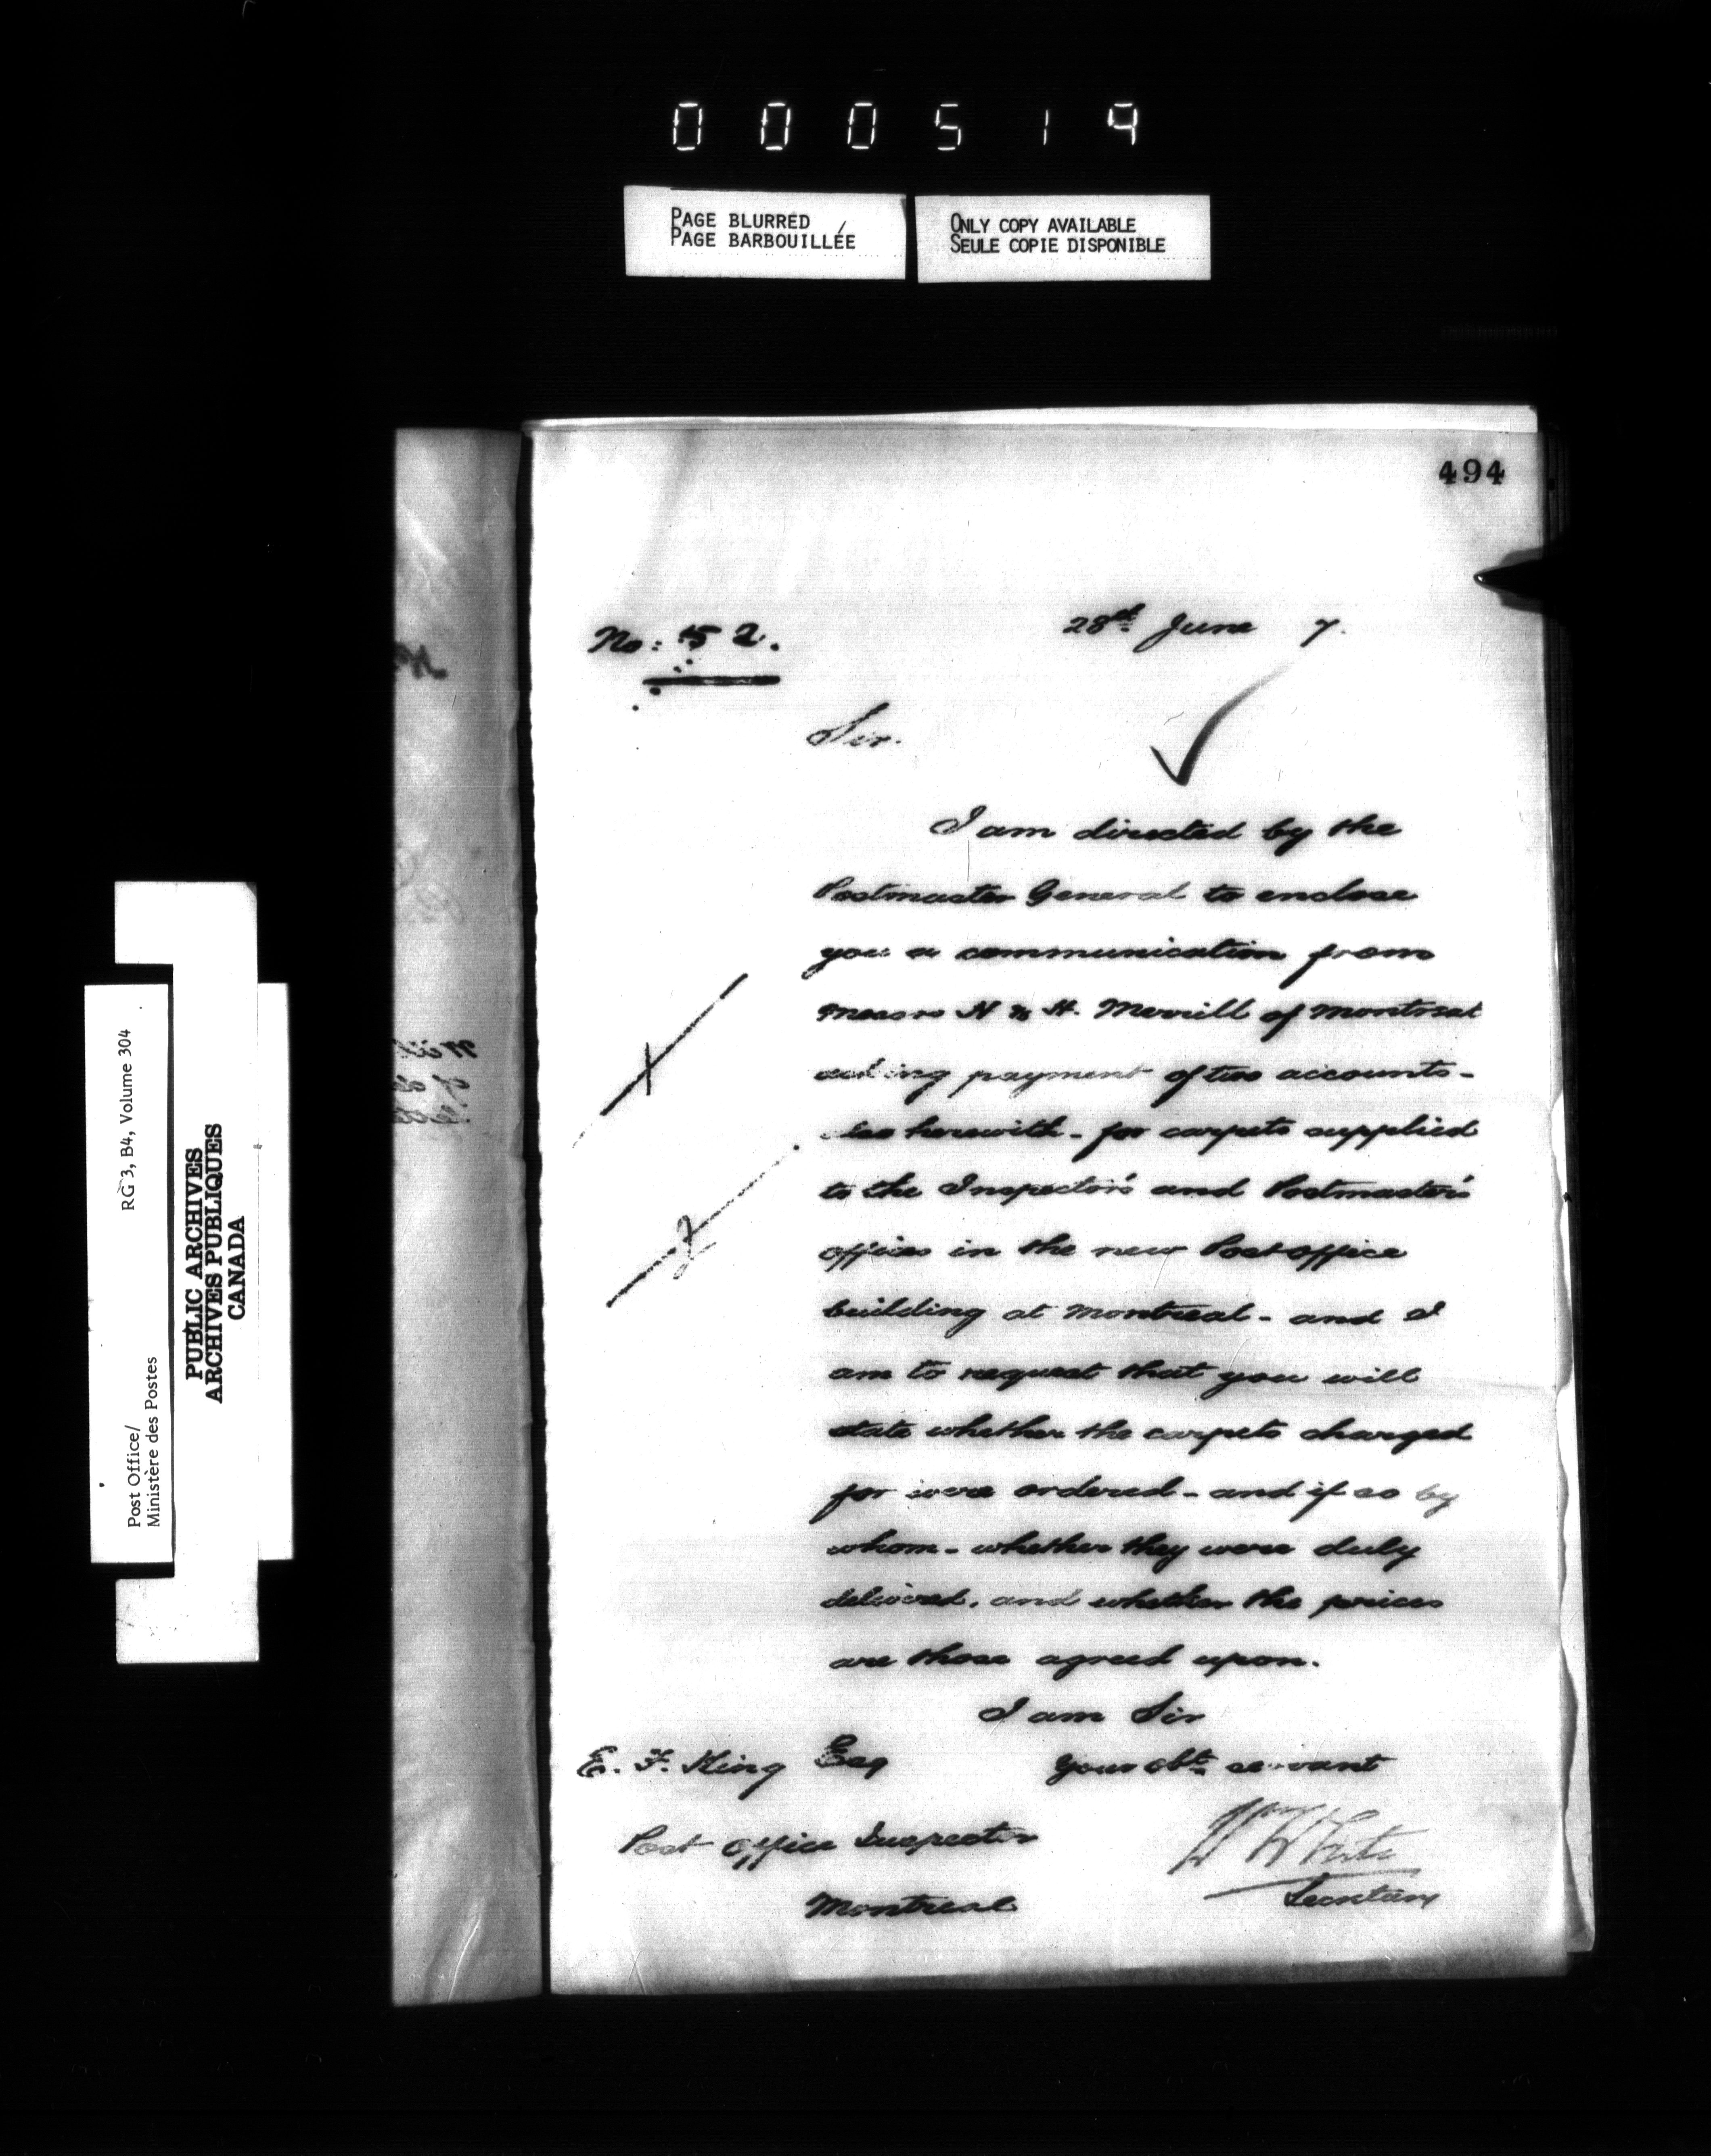 000519
PAGE BLURRED
PAGE BARBOUILLÉE
ONLY COPY AVAILABLE
SEULE COPIE DISPONIBLE
494
No: 52.
28th June 7.
Sir.
I am directed by the
Postmaster General to enclose
you a communication from
Messrs H & H. Merrill of Montreal
asking payment of two accounts -
also herewith - for carpets supplied
to the Inspector's and Postmaster's
offices in the new Post Office
building at Montreal - and I
am to request that you will
state whether the carpets charged
for were ordered - and if so by
whom - whether they were duly
delivered, and whether the prices
are those agreed upon.
I am Sir
Your obt servant
Wm White
Secretary
E. F. King Esq
Post Office Inspector
Montreal
1
2
Post Office/ RG 3, B4, Volume 304
Ministère des Postes
PUBLIC ARCHIVES
ARCHIVES PUBLIQUES
CANADA